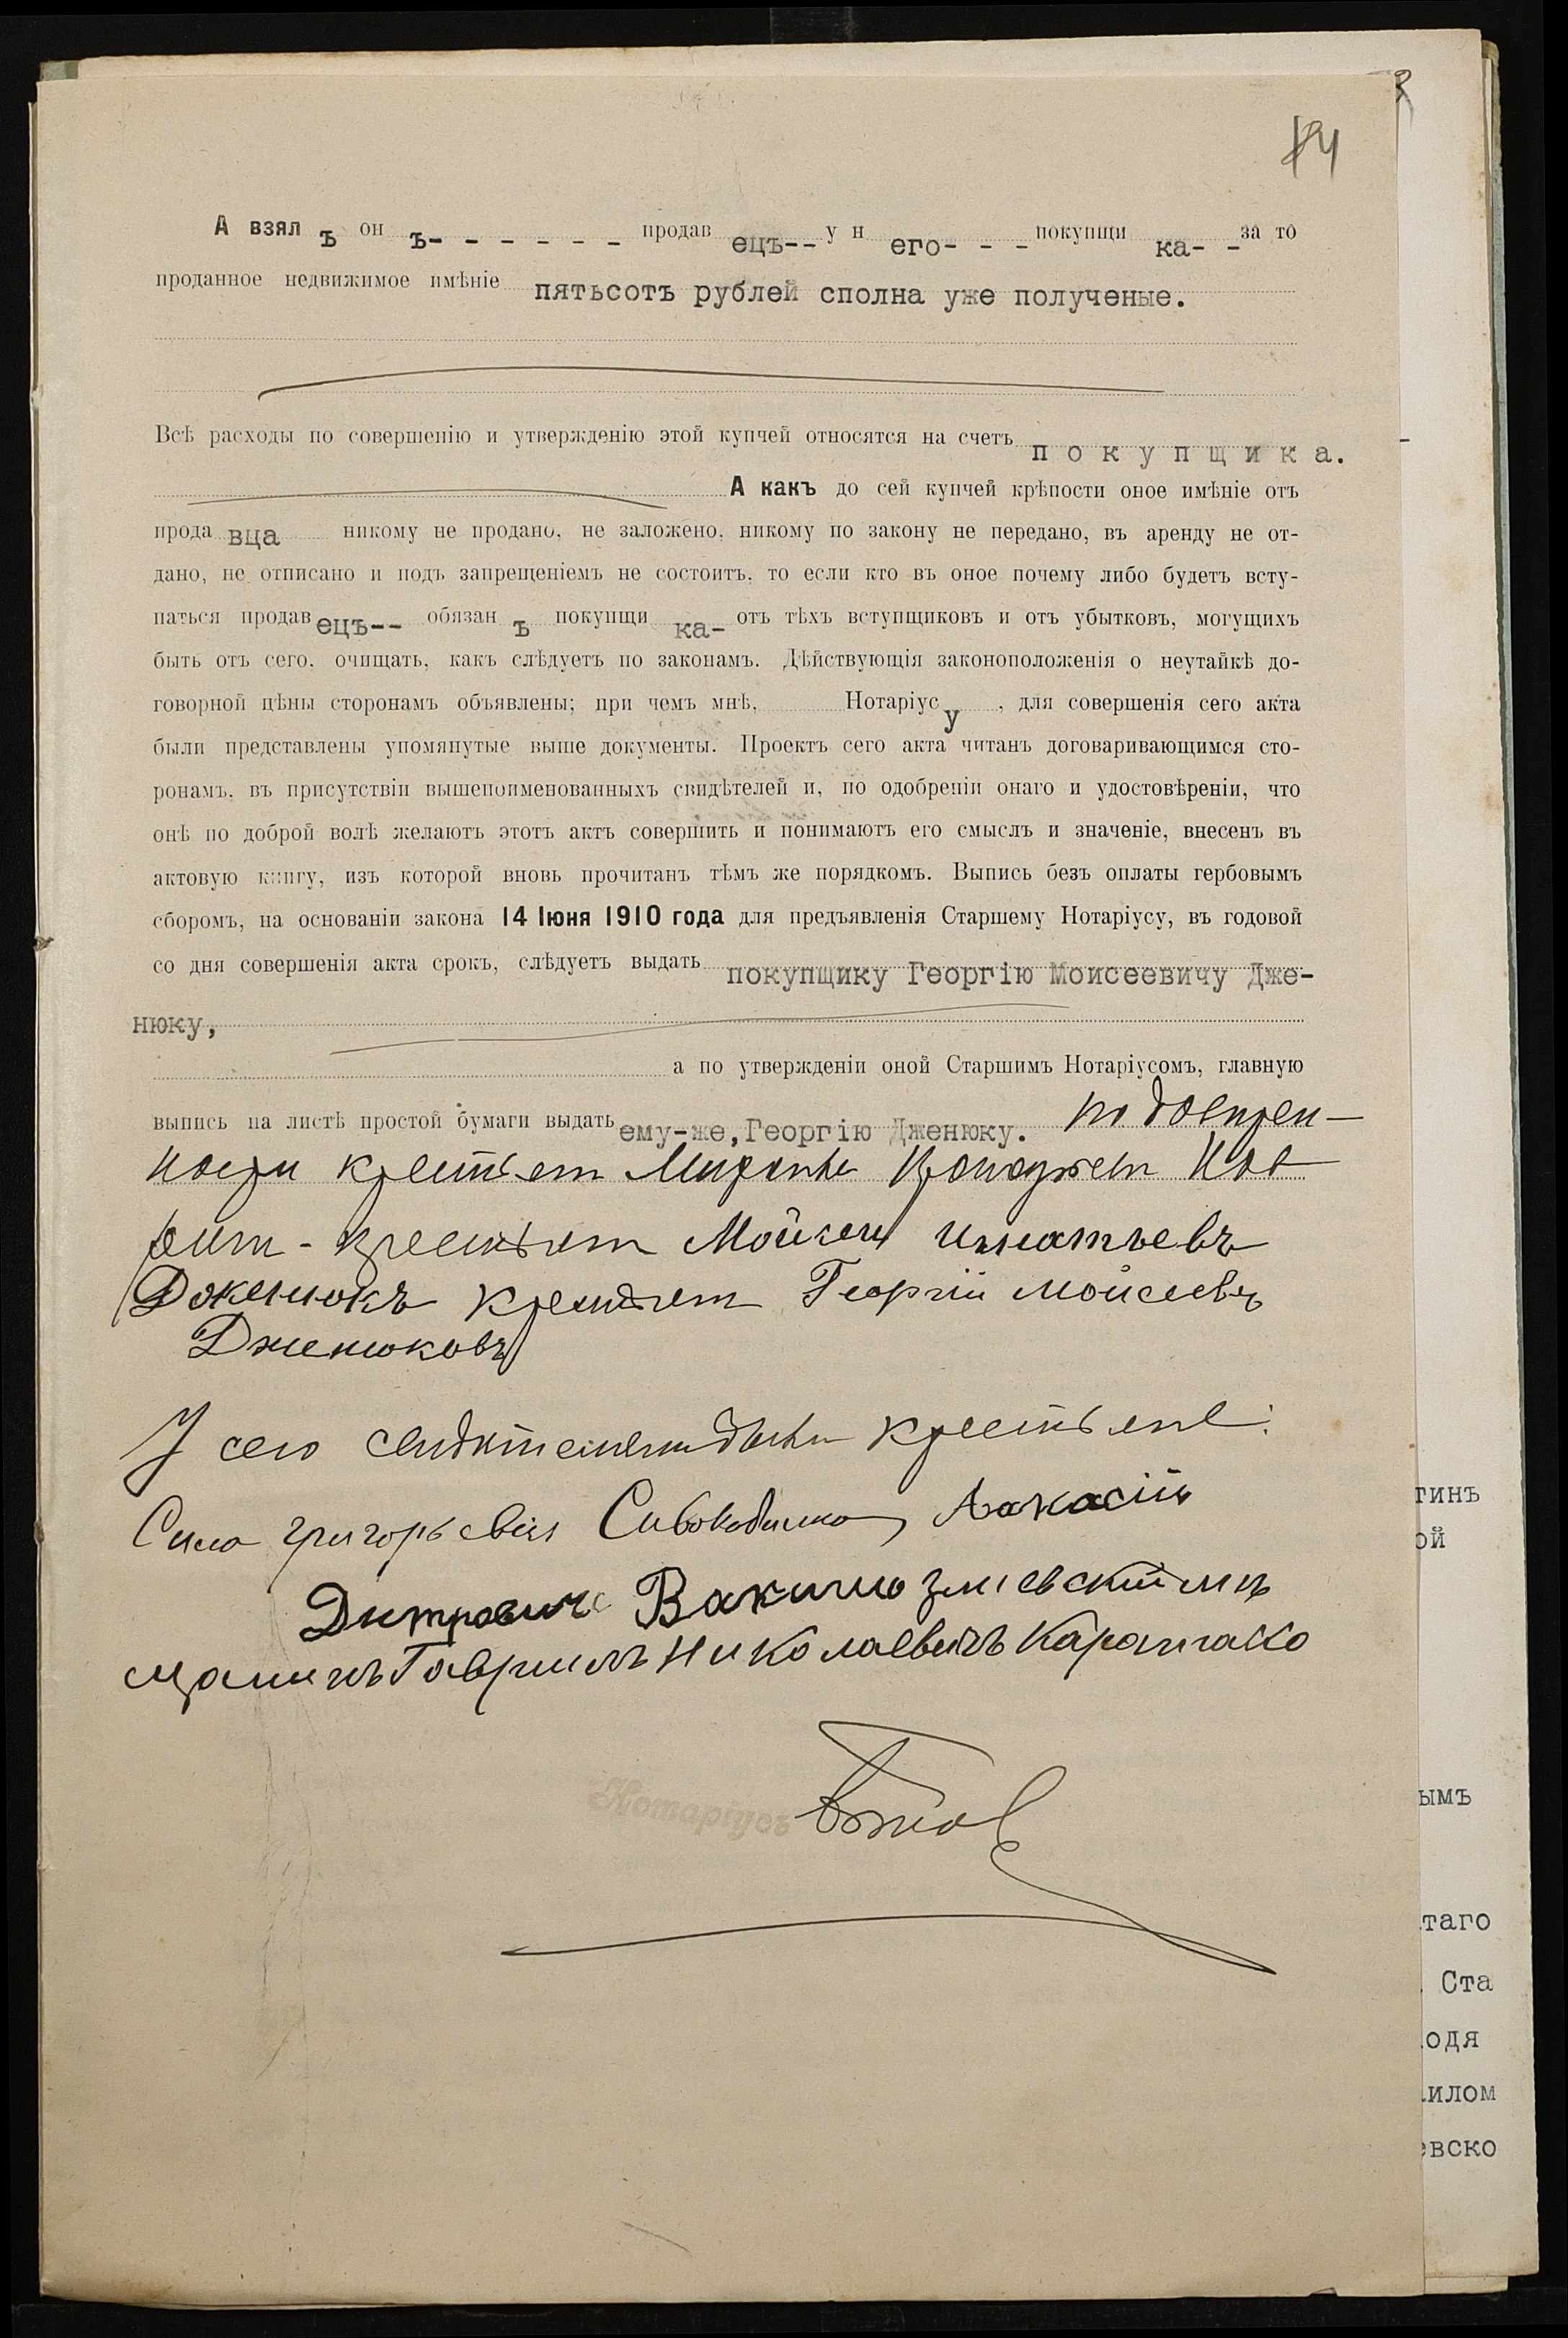 А взял ъ он ъ- - - - - - - продав ецъ-- у н его- - - покупщи ка- - за то
проданное недвижимое имѣніе пятьсотъ рублей сполна уже полученые.
Всѣ расходы по совершенію и утвержденію этой купчей относятся на счетъ покупщика.
А какъ до сей купчей крѣпости оное имѣніе отъ
прода вца никому не продано, не заложено, никому по закону не передано, въ аренду не от-
дано, не отписано и подъ запрещеніемъ не состоитъ, то если кто въ оное почему либо будетъ всту-
паться продав ецъ-- обязан ъ покупщи ка- отъ тѣхъ вступщиковъ и отъ убытковъ, могущихъ
быть отъ сего, очищать, какъ слѣдуетъ по законамъ. Дѣйствующія законоположенія о неутайкѣ до-
говорной цѣны сторонамъ объявлены; при чемъ мнѣ, Нотаріус у , для совершенія сего акта
были представлены упомянутые выше документы. Проектъ сего акта читанъ договаривающимся сто-
ронамъ, въ присутствіи вышепоименованныхъ свидѣтелей и, по одобреніи онаго и удостовѣреніи, что
онѣ по доброй волѣ желаютъ этотъ актъ совершить и понимаютъ его смыслъ и значеніе, внесенъ въ
актовую книгу, изъ которой вновь прочитанъ тѣмъ же порядкомъ. Выпись безъ оплаты гербовымъ
сборомъ, на основаніи закона 14 Іюня 1910 года для предъявленія Старшему Нотаріусу, въ годовой
со дня совершенія акта срокъ, слѣдуетъ выдать покупщику Георгію Моисеевичу Дже-
нюку,
а по утвержденіи оной Старшимъ Нотаріусомъ, главную
выпись на листѣ простой бумаги выдать ему-же, Георгію Дженюку. По довѣрен-
ности
Мойсей Игнатьевъ
Дженюкъ Георгій Мойсеевъ
Дженюковъ
У сего крестьяне:
Сила Григорьевич
Вакуло Зміевскій мѣ
щанинъ Гавриилъ Николаевичъ
Нотаріусъ
тинъ
ой
ымъ
таго
Ста
одя
илом
евско